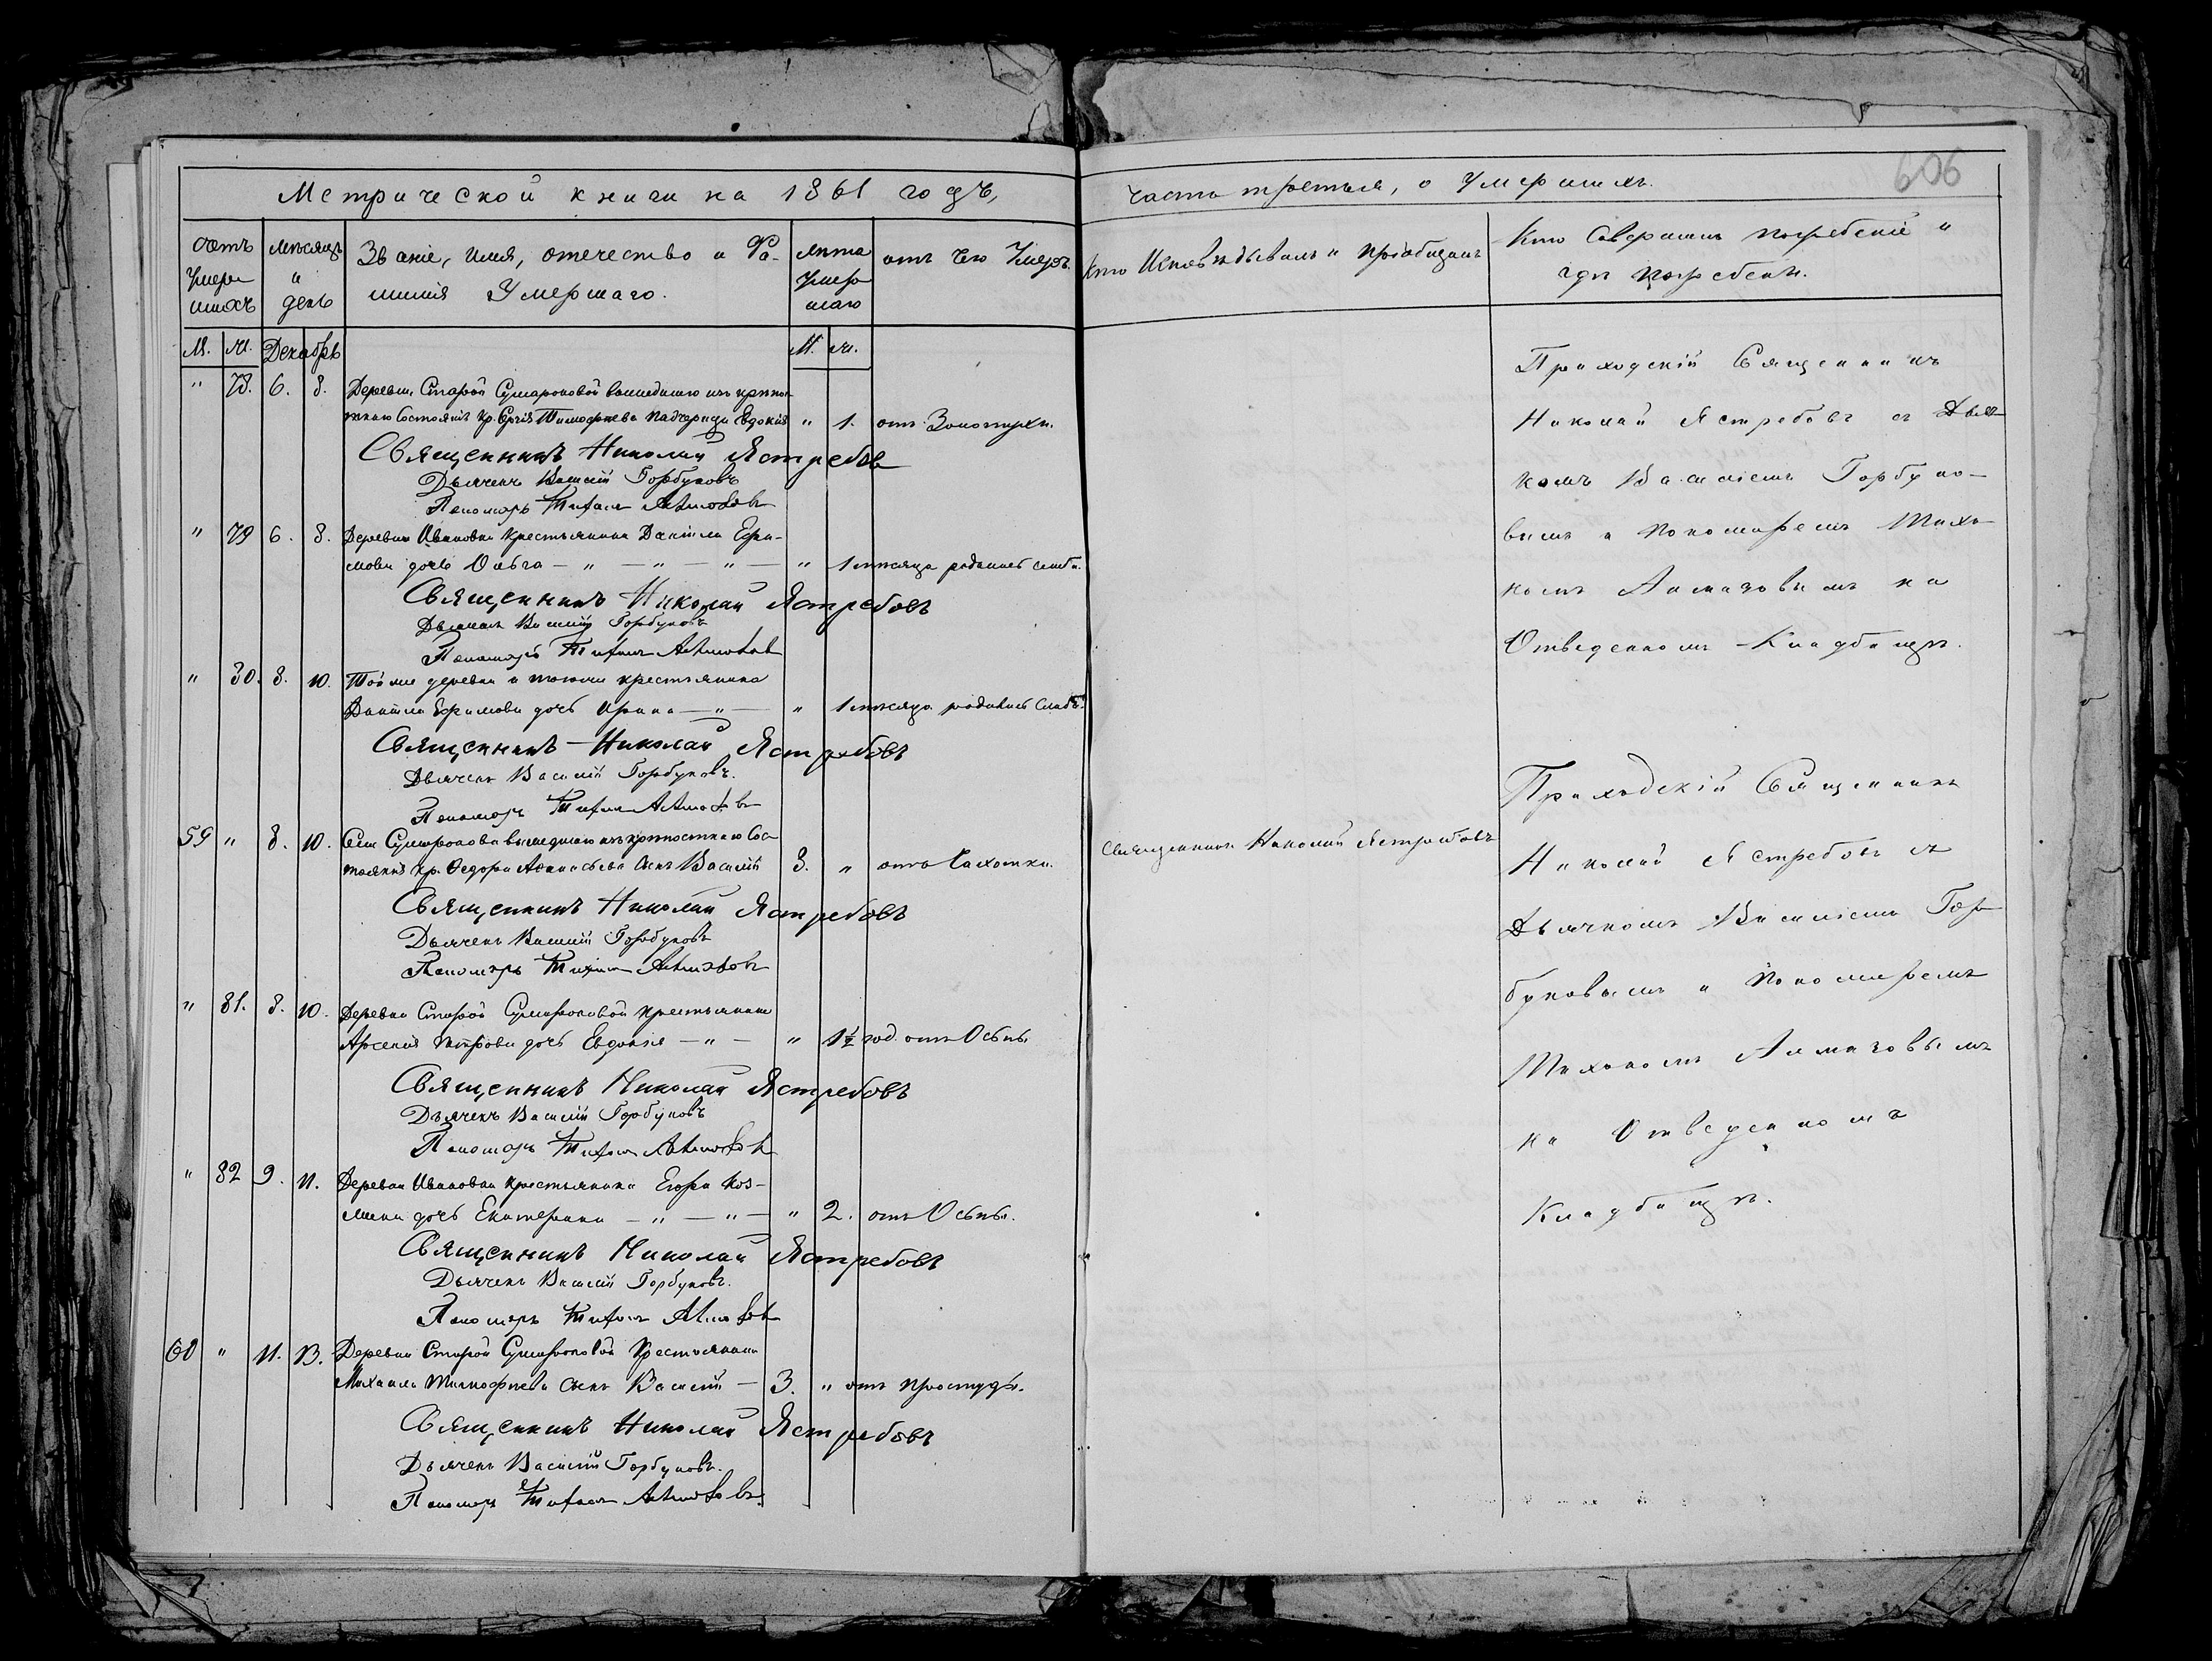 606
Метрической книги на 1861 годъ,
часть третья, о Умершихъ.
счетъ Умершихъ
мѣсяцъ и день
Званіе, имя, отечество и Фа-
милія Умершаго.
лѣта Умершаго
отъ чего Умеръ.
Кто Исповѣдывалъ и пріобщалъ
Кто Совершалъ погребеніе и
гдѣ погребены.
М. Ж. Декабрь М. Ж.
" 78. 6. 8. Деревни Старой Сумароковой вышедшаго изъ крѣпо-
стнаго Состоянія Кр. Сергія Тимофѣева падчерица Евдокія " 1. отъ Золотухи.
Священникъ Николай Ястребовъ
Дьячекъ Василій Горбуновъ
Пономарь Тихонъ Алмазовъ
" 79 6. 8. Деревни Ивановки крестьянина Даніила Ефи-
мова дочь Ольга — " — " — " — " 1 мѣсяца родилась слаба.
Священникъ Николай Ястребовъ
Дьячекъ Василій Горбуновъ
Пономарь Тихонъ Алмазовъ
" 80. 8. 10. Той же деревни и тогоже крестьянина
Даніила Ефимова дочь Ирина — " — " 1 мѣсяца родилась слаба.
Священникъ Николай Ястребовъ
Дьячекъ Василій Горбуновъ.
Пономарь Тихонъ Алмазовъ
59 " 8. 10. Села Сумарокова вышедшаго изъ крѣпостнаго Сос-
тоянія кр. Федора Афанасьева сынъ Василій 8. " отъ Чахотки.
Священникъ Николай Ястребовъ
Дьячекъ Василій Горбуновъ
Пономарь Тихонъ Алмазовъ
" 81. 8. 10. Деревни Старой Сумароковой крестьянина
Арсенія Петрова дочь Евдокія — " — " 1½ год. отъ Оспы.
Священникъ Николай Ястребовъ
Дьячекъ Василій Горбуновъ
Пономарь Тихонъ Алмазовъ
" 82 9. 11. Деревни Ивановки крестьянина Егора Коз-
мина дочь Екатерина — " — " — " 2. отъ Оспы.
Священникъ Николай Ястребовъ
Дьячекъ Василій Горбуновъ.
Пономарь Тихонъ Алмазовъ
60 " 11. 13. Деревни Старой Сумароковой Крестьянина
Михаила Тимофѣева сынъ Василій — 3. " отъ простуды.
Священникъ Николай Ястребовъ
Дьячекъ Василій Горбуновъ.
Пономарь Тихонъ Алмазовъ.
Приходскій Священникъ
Николай Ястребовъ съ Дьяч-
комъ Василіемъ Горбуно-
вымъ и пономаремъ Тихо-
номъ Алмазовымъ на
Отведенномъ Кладбищѣ.
Священникъ Николай Ястребовъ
Приходскій Священникъ
Николай Ястребовъ съ
Дьячкомъ Василіемъ Гор-
буновымъ и пономаремъ
Тихономъ Алмазовымъ
на Отведенномъ
Кладбищѣ.